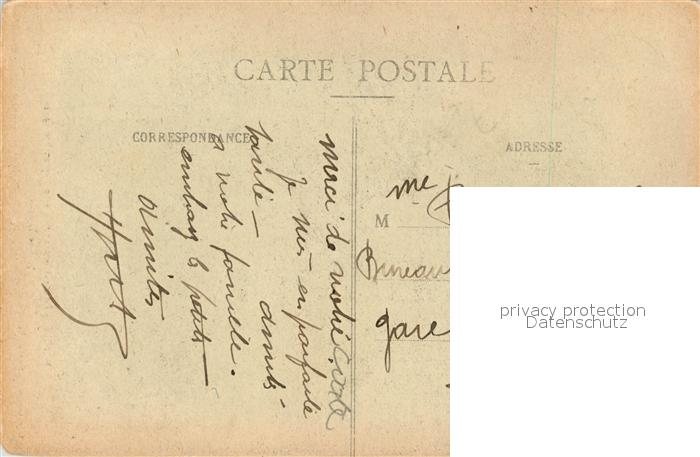 CARTE POSTALE
CORRESPONDANCE
ADRESSE
Merci de votre carte
Je suis en parfaite
santé - amitiés
a votre famille.
embrassez les petits
amitiés
M
Me
Bureau
gare
privacy protection
Datenschutz